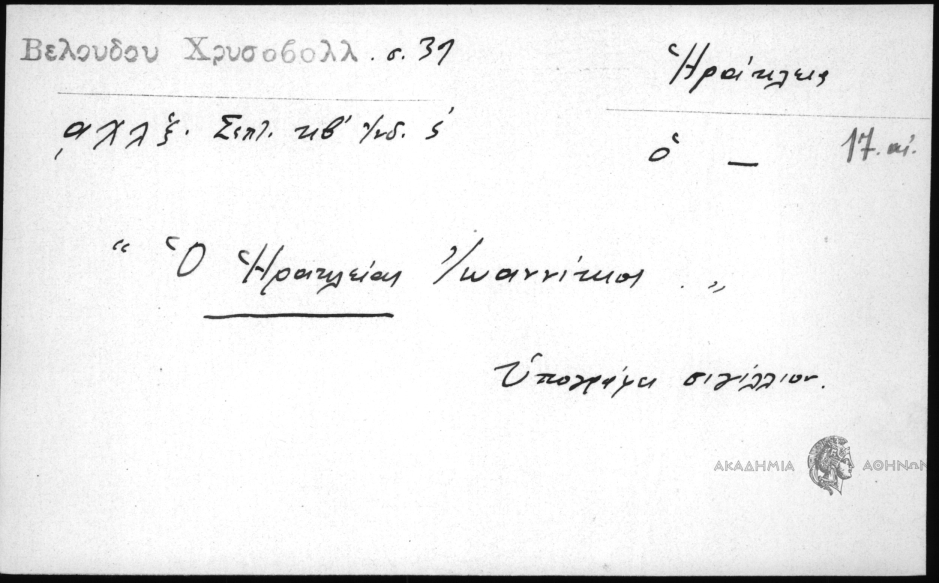 Βελουδου Χρυσοβολλ. σ. 31
Ἡράκλεια
͵αχλξ. Σεπτ. κβ' Ἰνδ. ε'
ὁ —
17. αἰ.
“ Ὁ Ἡρακλείας Ἰωαννίκιος . „
Ὑπογράφει σιγίλλιον.
ΑΚΑΔΗΜΙΑ ΑΘΗΝΩΝ